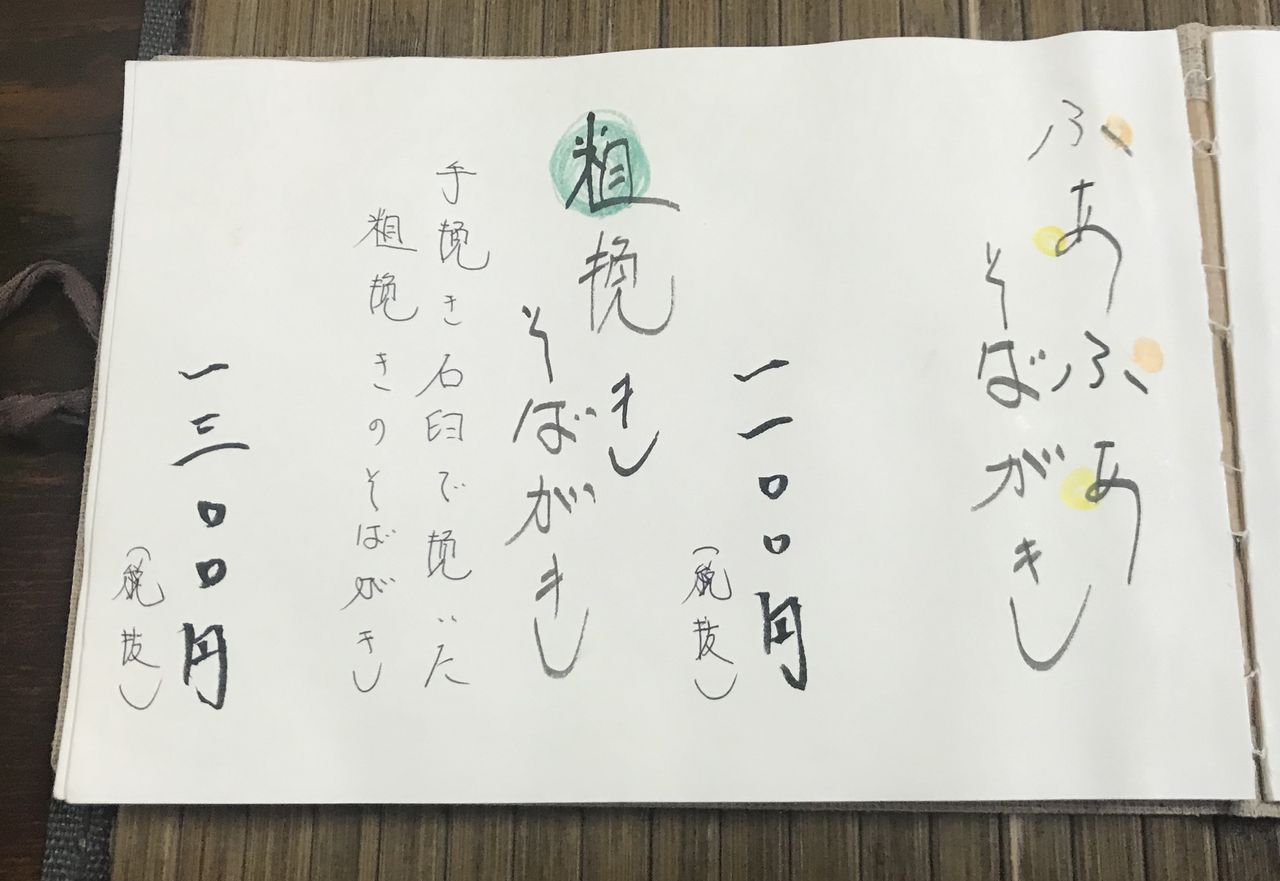 ふあふあ
そばがき
一一〇〇円
(税抜)
粗挽き
そばがき
手挽き石臼で挽いた
粗挽きのそばがき
一三〇〇円
(税抜)